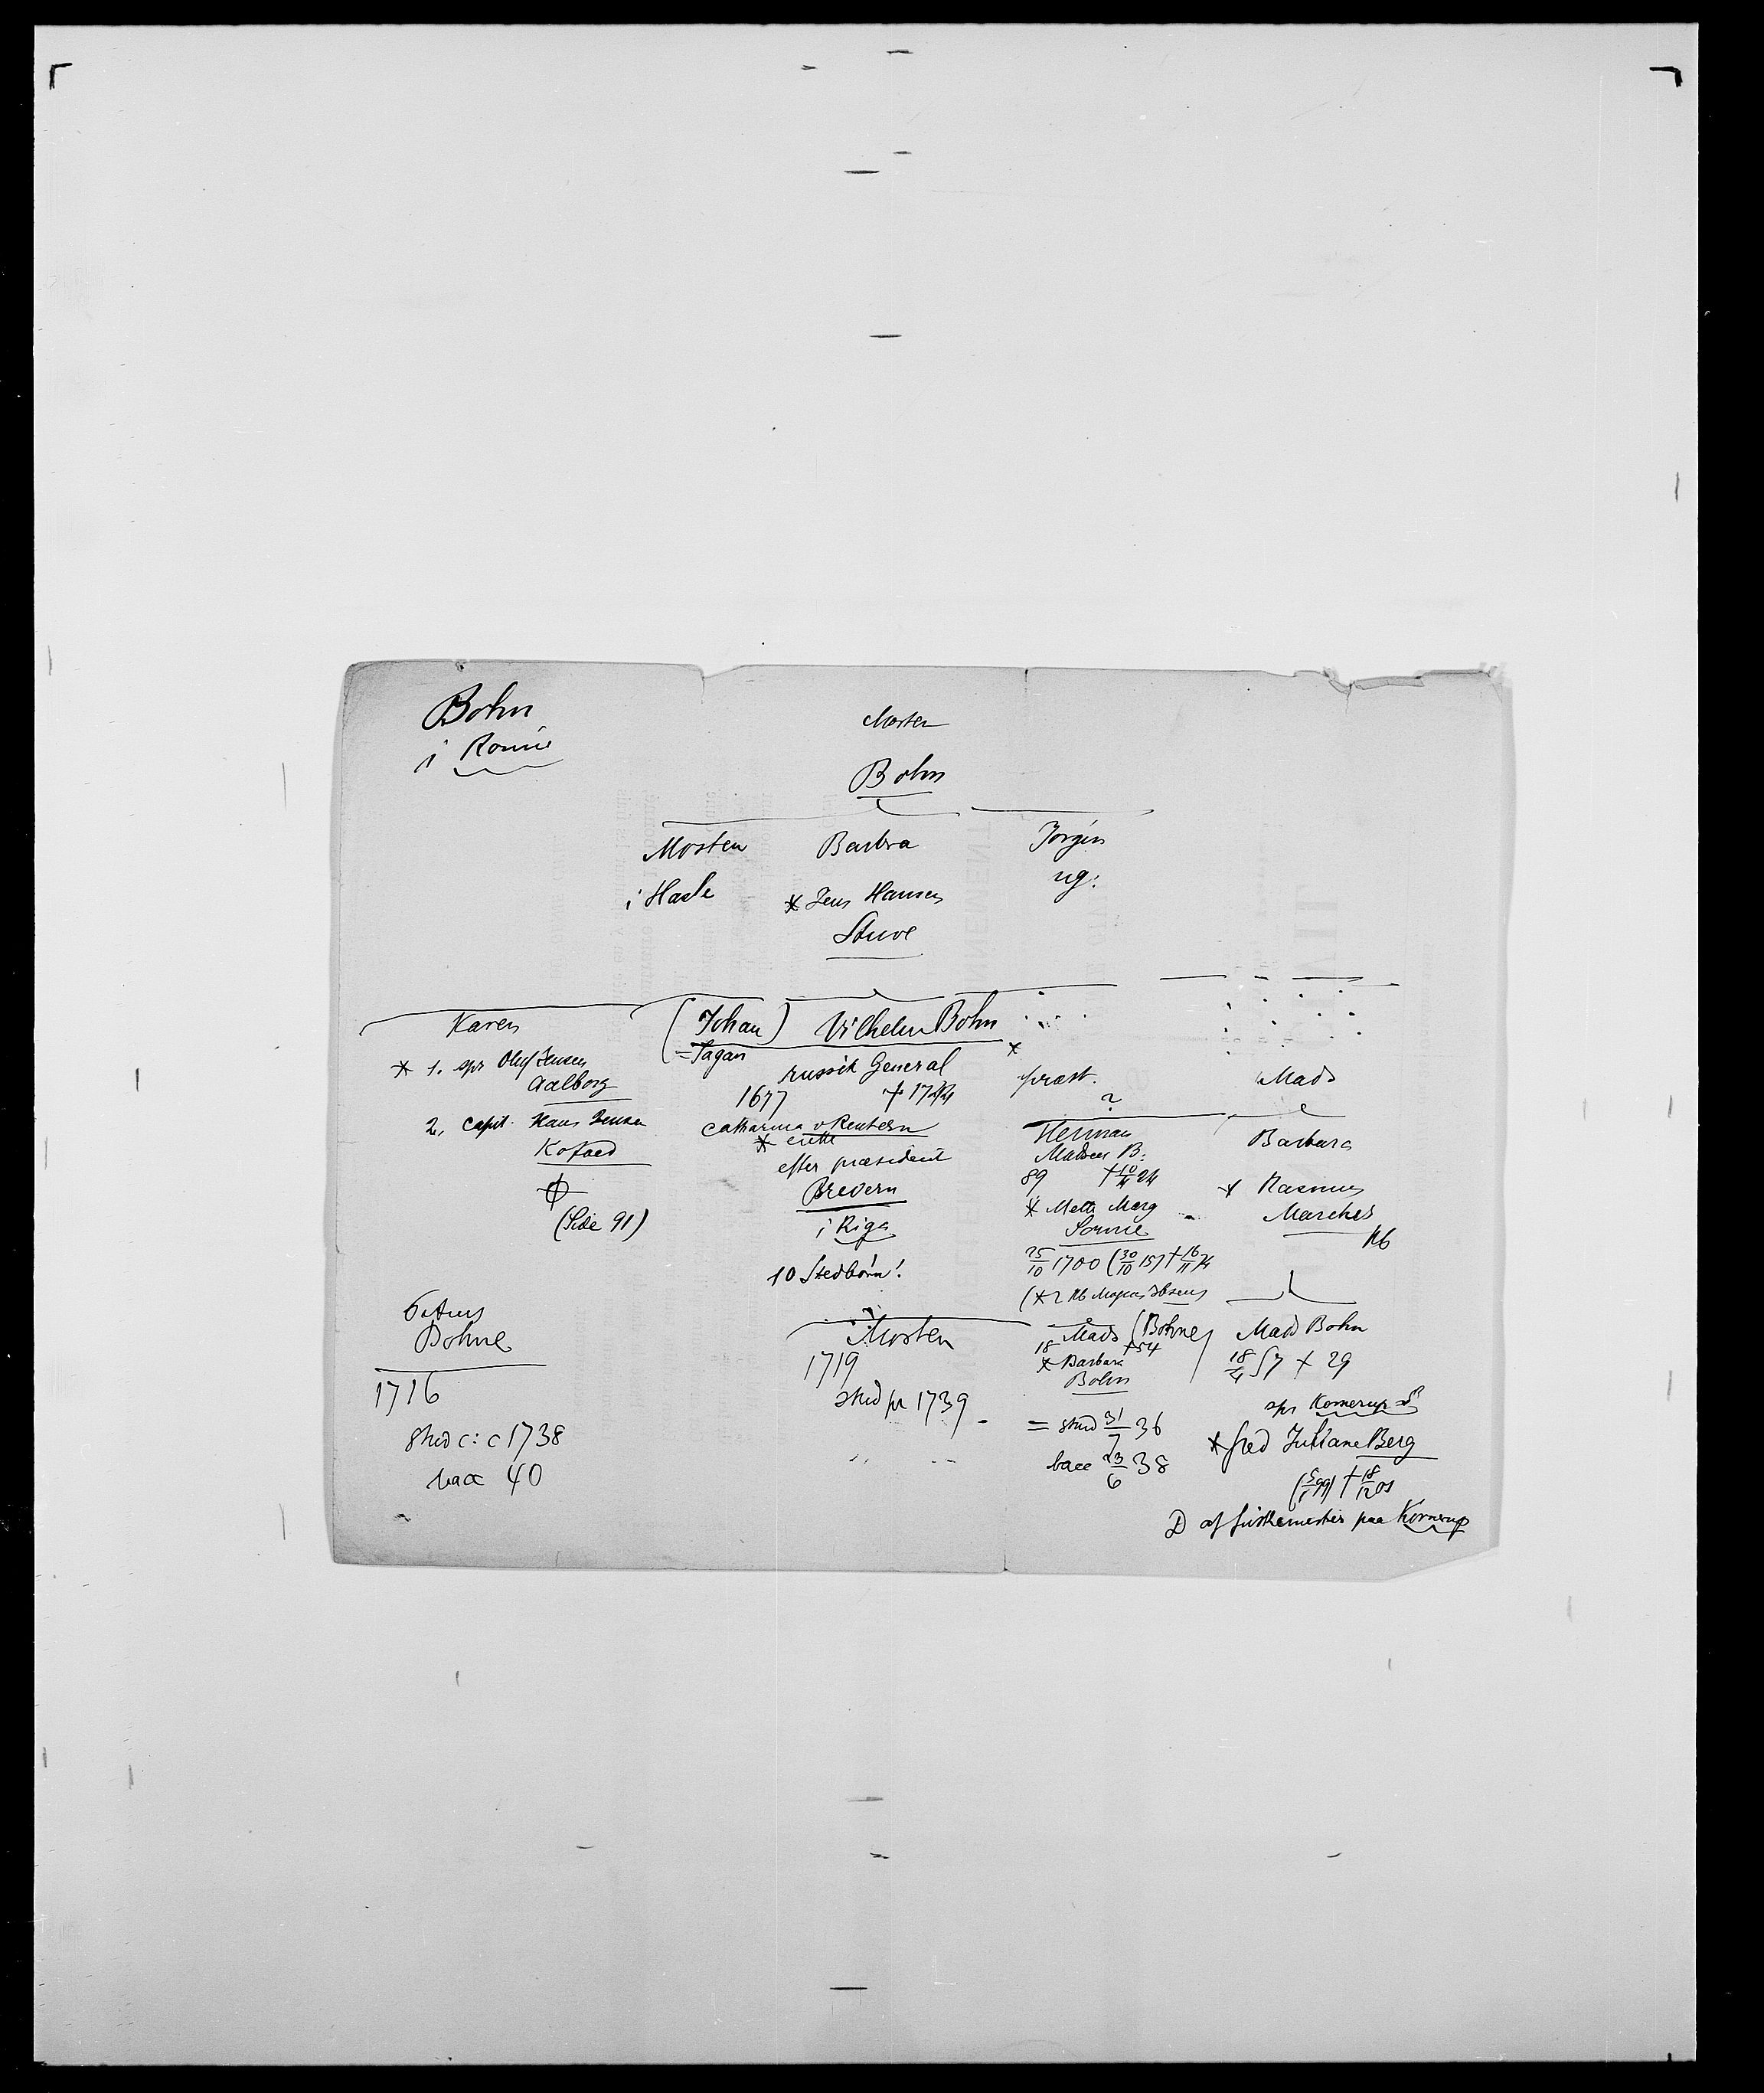 Bohn
i Rønne
Morten
Bohn
Morten
i Hasle
Barbra
* Jens Hansen
Stuve
Jørgen
ug:
Karen
* 1. spr Oluf Jensen
Aalborg
2. Capit. Hans Jensen
Kofoed
(Side 91)
(Johan) Vilhelm Bohn
russisk General
1677
Catharina v Reutern
* enke
efter præsident
Brevern
i Riga
10 Stedbørn!
*
præst.
?
Herman
Madsen B:
89
* Mette Marg
Sonne
25/10 1700 (30/10 15) † 16/11
Mads
Barbara
* Rasmus
Marcher
Kb
Bohne
1716
stud c: c 1738
bacc 40
Morten
1719
stud pr 1739
Mads (Bohne)
18 † 54
* Barbara
Bohn
= stud 31/7 36
bacc 23/6 38
Mads Bohn
18/4 57 † 29
spr Kornerup
* fred Juliane Berg
(5/1 99) † 18/12 01
D af paa Kornerup